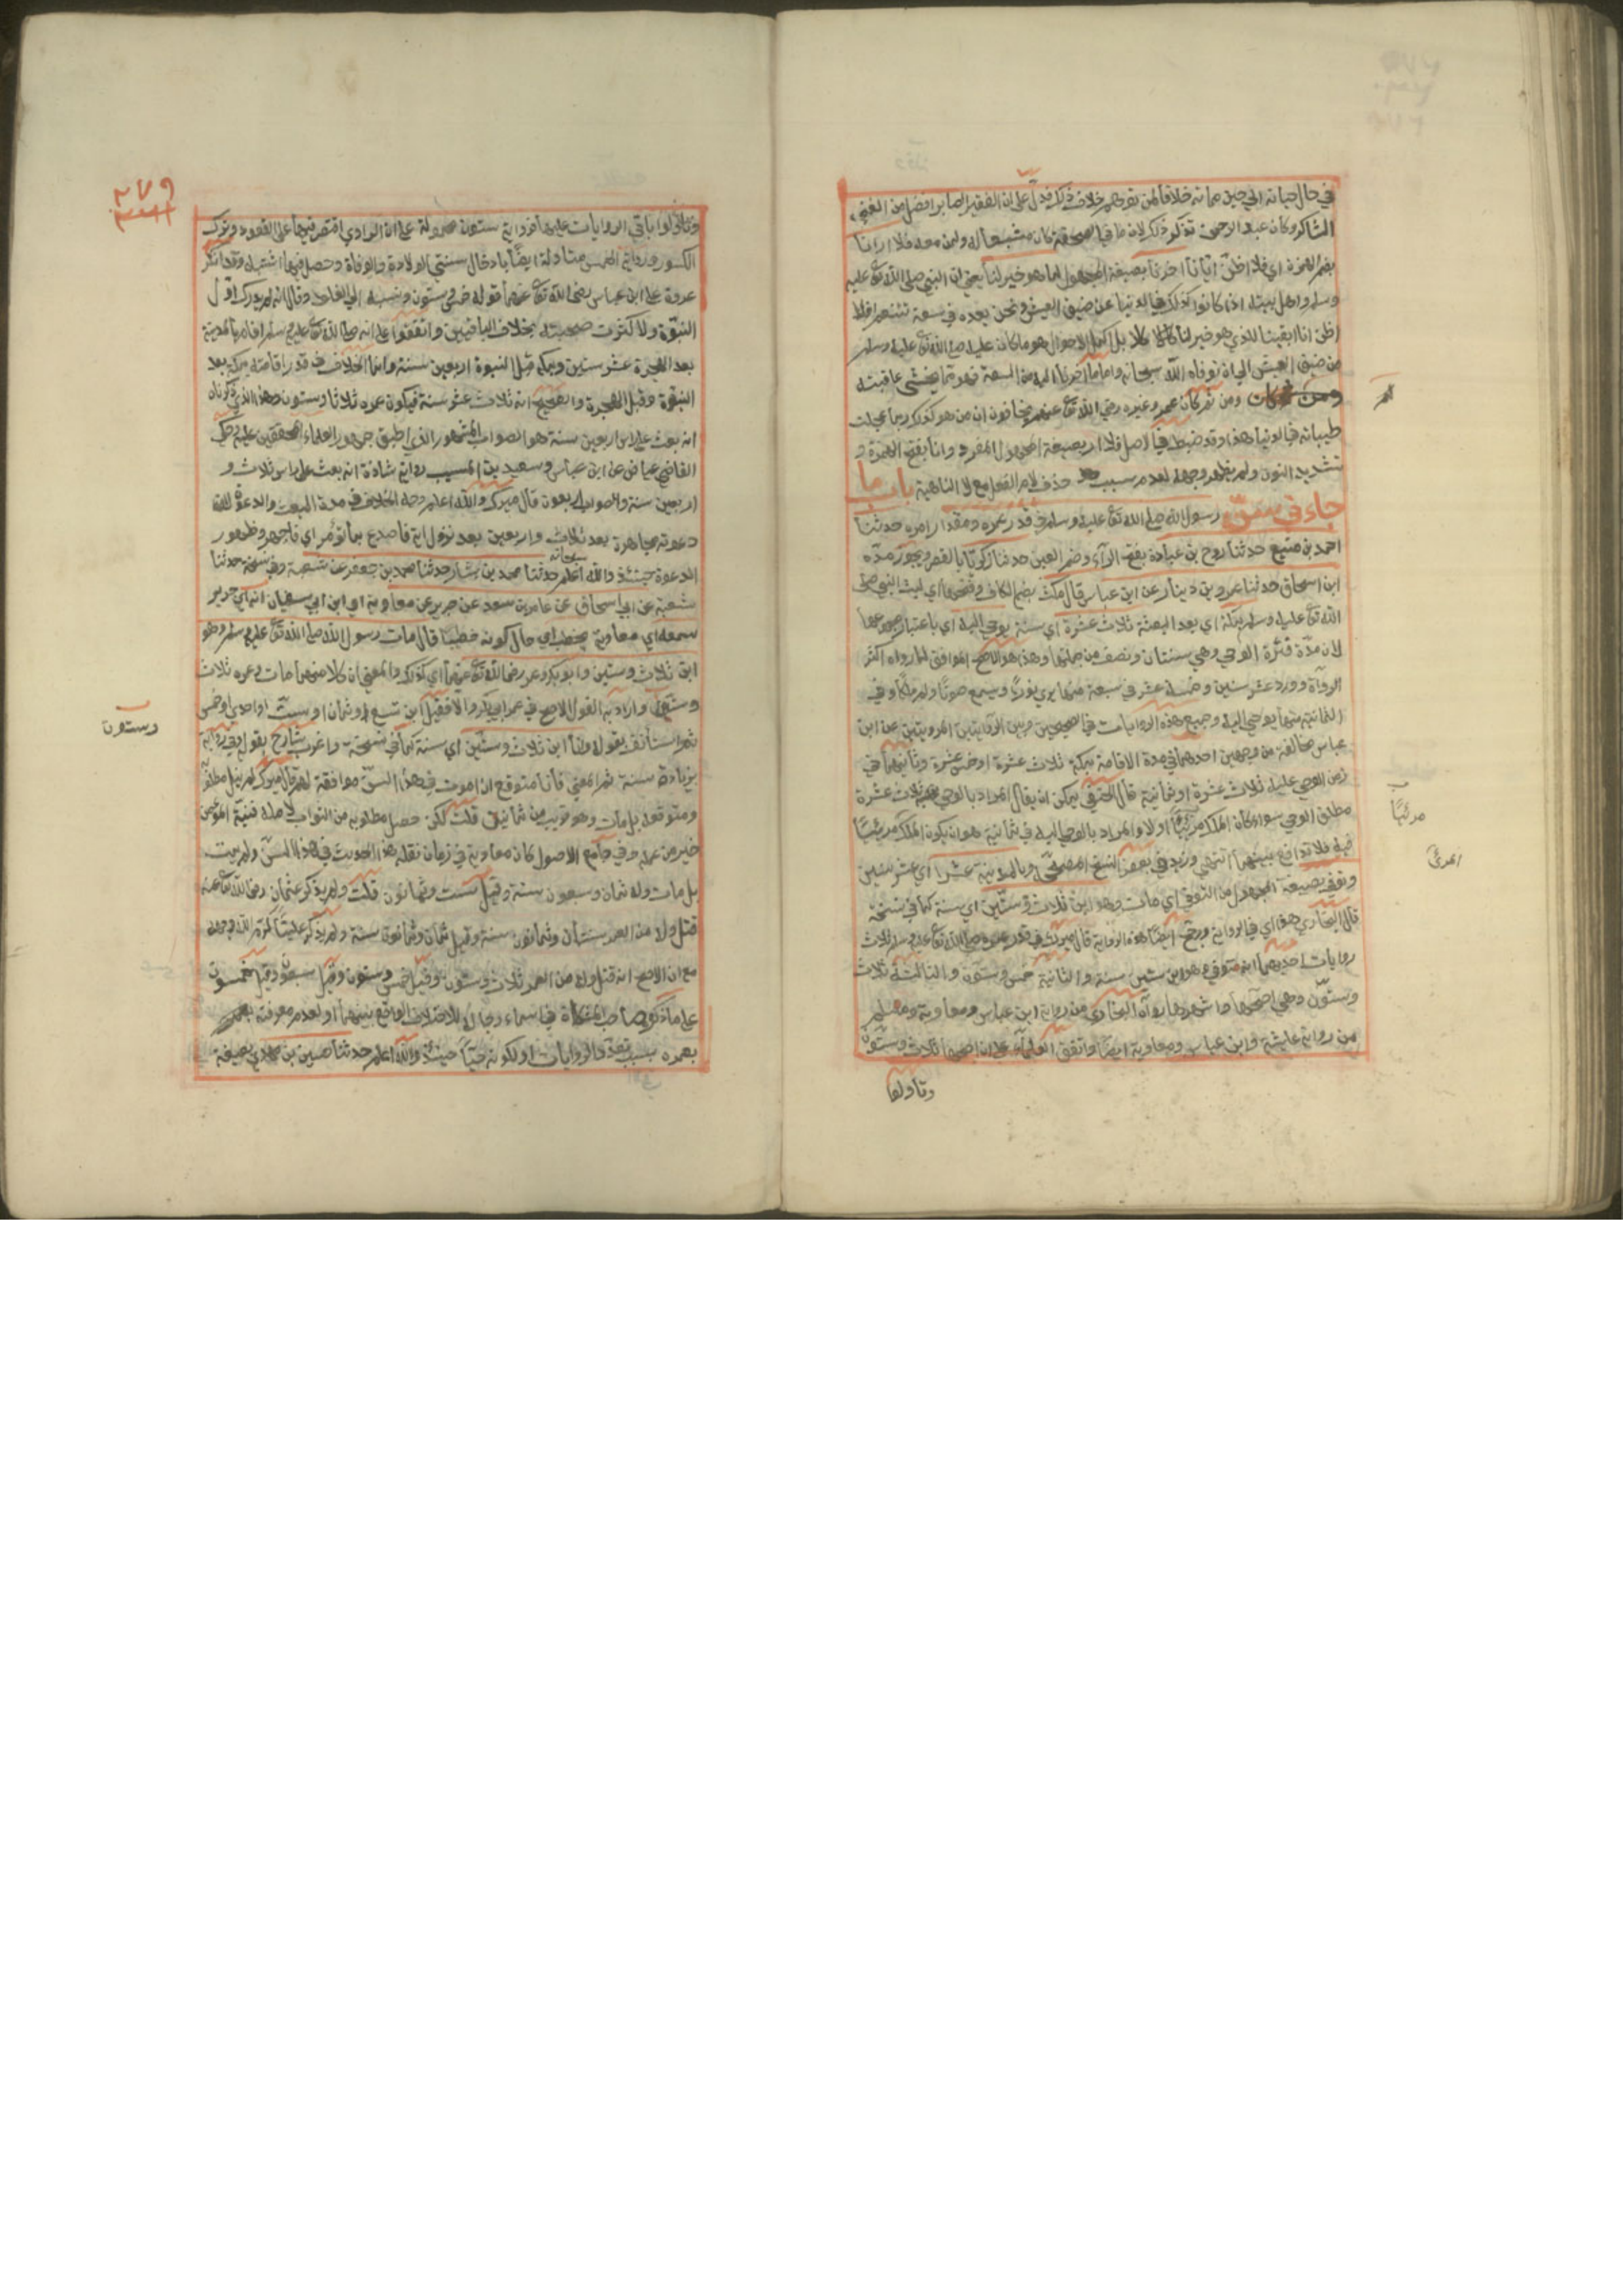 في حال حياته الي حين مماته خلافا لمن توهم خلاف ذلك فدل على ان الفقير الصابر افضل من الغني
الشاكر وكان عبد الرحمن تذكر ذلك لان ما في الصحفة كان مشبعا له ولمن معه فلا ارانا
بضم الهمزة اي فلا اظن ايانا اخرنا بصيغة المجهول لما هو خير لنا يعني ان النبي صلى الله تع عليه
وسلم واهل بيته اذا كانوا كذلك في الدنيا عن ضيق العيش ونحن بعده في سعة تنعم افلا
اظن انا ابقينا للذي هو خير لنا كلا بل اكمل الاحوال هو ما كان عليه صلى الله تع عليه وسلم
من ضيق العيش الي ان توفاه الله سبحانه واما ما اخرنا اليه من السعة فهو مما يخشى عاقبته
ومن ثم كان عمر وغيره رضي الله تع عنهم يخافون ان من هو كذلك ربما عجلت
طيباته في الدنيا هذا وقد ضبط في اصل فلا ار بصيغة المجهول المفرد وانا بفتح الهمزة و
تشديد النون ولم يظهر وجهه لعدم سبب حذف لام الفعل مع لا الناهية باب ما
جاء في سن رسول الله صلى الله تع عليه وسلم في قدر عمره ومقدار امره حدثنا
احمد بن منيع حدثنا روح بن عبادة بفتح الرآء وضم العين حدثنا زكريا بالقصر ويجوز مده
ابن اسحاق حدثنا عمرو بن دينار عن ابن عباس قال مكث بضم الكاف وفتحها اي لبث النبي صلى
الله تع عليه وسلم بمكة اي بعد البعثة ثلاث عشرة اي سنة يوحي اليه اي باعتبار مجموعها
لان مدة فترة الوحي وهي سنتان ونصف من جملتها وهذا هو الاصح الموافق لما رواه اكثر
الرواة وورد عشر سنين وخمسة عشر في سبعة منها يري نورا ويسمع صوتا ولم ير ملكا وفي
الثمانية منها يوحي اليه وجميع هذه الروايات في الصحيحين وبين الروايتين المرويتين عن ابن
عباس مخالفة من وجهين احدهما في مدة الاقامة بمكة ثلاث عشرة او خمس عشرة وثانيهما في
زمن الوحي عليه ثلاث عشرة او ثمانية قال الحنفي يمكن ان يقال المراد بالوحي في ثلاث عشرة
مطلق الوحي سواء كان الملك مرئيا او لا والمراد بالوحي اليه في ثمانية هو ان يكون الملك مرئيا
فيه فلا تدافع بينهما انتهي وزيد في بعض النسخ المصححة وبالمدينة عشرا اي عشر سنين
وتوفي بصيغة المجهول من التوفي اي مات وهو ابن ثلاث وستين اي سنة كما في نسخة
قال البخاري هذا اي في الرواية ورجح ايضا هذه الرواية قال ميرك في قدر عمره صلى الله تع عليه وسلم ثلاث
روايات احديهما انه توفي وهو ابن ستين سنة والثانية خمس وستون والثالثة ثلاث
وستون وهي اصحها واشهرها رواه البخاري من رواية ابن عباس ومعاوية ومسلم
من رواية عايشة وابن عباس ومعاوية ايضا واتفق العلمآء على ان اصحها ثلاث وستون
وتأولوا
مرئيا
المرئي
٢٧٩
وتاولوا باقي الروايات عليها فرواية ستون محمولة على ان الراوي اقتصر فيها على العقود وترك
الكسور ورواية الخمس متاولة ايضا بادخال سنتي الولادة والوفاة وحصل فيها اشتباه وقد انكر
عروة على ابن عباس رضي الله تع عنهما قوله خمس وستون ونسبه الي الغلط وقال انه لم يدرك اول
النبوة ولا كثرت صحبته بخلاف الباقين واتفقوا على انه صلى الله تع عليه وسلم اقام بالمدينة
بعد الهجرة عشر سنين وبمكة قبل النبوة اربعين سنة وانما الخلاف في قدر اقامته بمكة بعد
النبوة وقبل الهجرة والصحيح انه ثلاث عشر سنة فيكون عمره ثلاثا وستون وهذا الذي ذكرناه
انه بعث على راس اربعين سنة هو الصواب المشهور الذي اطبق جمهور العلماء المحققين عليه وحكي
القاضي عياض عن ابن عباس وسعيد بن المسيب رواية شاذة انه بعث على راس ثلاث و
اربعين سنة والصواب اربعون قال ميرك والله اعلم وجه الخلاف في مدة البعث والدعوة لان
دعوته مجاهرة بعد ثلاث واربعين بعد نزول اية فاصدع بما تؤمر اي فاجهر وظهور
الدعوة حينئذ والله سبحانه اعلم حدثنا محمد بن بشار حدثنا محمد بن جعفر عن شعبة وفي نسخة حدثنا
شعبة عن ابي اسحاق عن عامر بن سعد عن جرير عن معاوية اي ابن ابي سفيان انه اي جرير
سمعه اي معاوية يخطب اي حال كونه خطيبا قال مات رسول الله صلى الله تع عليه وسلم وهو
ابن ثلاث وستين وابو بكر وعمر رضي الله تع عنهما اي كذلك والمعني ان كلا منهما مات وعمره ثلاث
وستون وارادبه القول الاصح في عمر ابي بكر والا فقيل ابن تسع او ثمان او ست او احدي او خمس
ثم استأنف بقوله وانا ابن ثلاث وستين اي سنة كما في نسخة واغرب شارح بقوله وفي رواية
بزيادة سنة ثم المعني فانا متوقع ان اموت في هذا السن موافقة لهم قال ميرك لم ينل مطلوبه
ومتوقعه بل مات وهو قريب من ثمانين قلت لكن حصل مطلوبه من الثواب لاجله فنية المؤمن
خير من عمله وفي جامع الاصول كان معاوية في زمان نقله هذا الحديث في هذا السن ولم يمت
بل مات وله ثمان وسبعون سنة وقيل ست وثمانون قلت ولم يذكر عثمان رضي الله تع عنه
قتل وله من العمر سنتان وثمانون سنة وقيل ثمان وثمانون سنة ولم يذكر عليا كرم الله وجهه
مع ان الاصح انه قتل وله من العمر ثلاث وستون وقيل خمس وستون وقيل سبعون وقيل خمسون
على ما ذكره صاحب المشكاة في اسماء رجاله للاختلاف الواقع بينهما او لعدم معرفته بعمره
بعمره بسبب تعدد الروايات او لكونه حيا حينئذ والله اعلم حدثنا حسين بن مهدي بصيغة
وستون